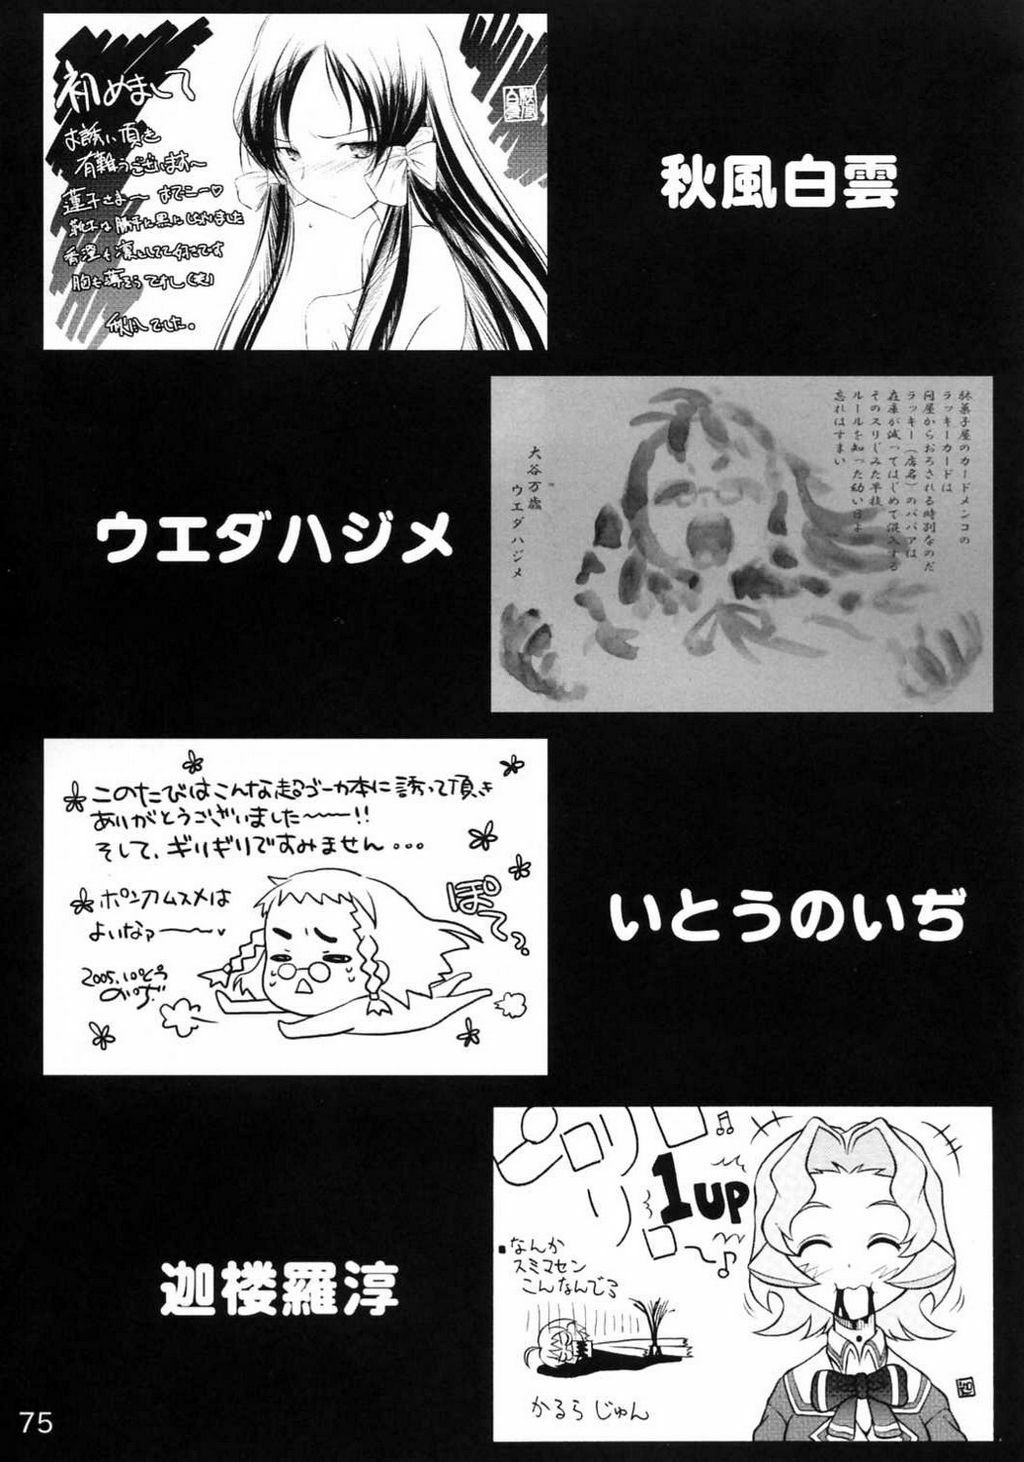 初めまして
お誘い頂き
有難うございます〜
蓮子さま〜 おでこー♡
胸も薄そうですし(笑)
秋風白雲
駄菓子屋のカードメンコの
ラッキーカードは
問屋からおろされる時別なのだ
ラッキー(店名)のババアは
在庫が減ってはじめて混入する
そのスリじみた早技
ルールを知った幼い日よ
忘れはすまい
大谷万歳
ウエダハジメ
ウエダハジメ
このたびはこんな超ゴーカ本に誘って頂き
ありがとうございました〜〜!!
そして、ギリギリですみません・・・
ポンカムスメは
よいなァ〜〜♥
ぽて?
2005.10
のいぢ
いとうのいぢ
ピロリロリロ〜♪
1UP
なんか
スミマセン
こんなんでろ
かるら じゅん
迦楼羅淳
75